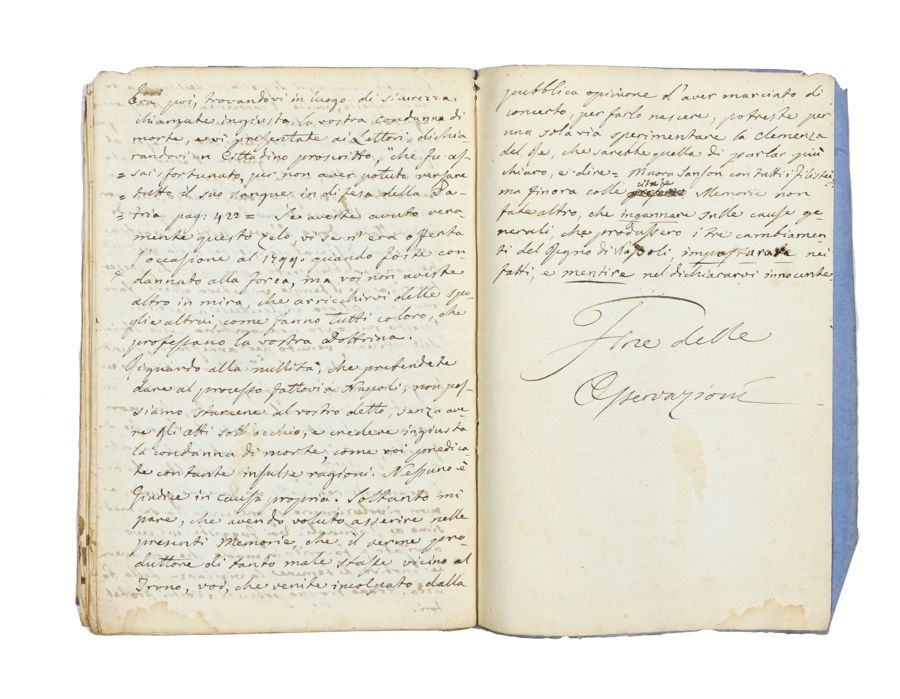 Ora poi, trovandovi in luogo di sicurezza
chiamate ingiusta la vostra condanna di
morte, e vi presentate ai Lettori, dichia
randovi un Cittadino proscritto, "che fu as-
= sai sfortunato, per non aver potuto versare
= tutto il suo sangue in difesa della Pa-
= tria pag: 422 = Se aveste avuto vera-
mente questo zelo, vi se n'era offerta
l'occasione al 1799: quando foste con
dannato alla forca, ma voi non aveste
altro in mira, che arricchirvi delle spo-
glie altrui, come fanno tutti coloro, che
professano la vostra Dottrina.
Riguardo alla nullità, che pretendete
dare al processo fattovi a Napoli, non pos-
siamo starcene al vostro detto, senza ave-
re gli atti sott'occhio, e credere ingiusta
la condanna di morte, come voi predica-
te con tante insulse ragioni. Nessuno è
Giudice in causa propria. Soltanto mi
pare, che avendo voluto asserire nelle
presenti Memorie, che il verme pro-
duttore di tanto male stasse vicino al
Trono, voi, che venite incolpato dalla
pubblica opinione d'aver marciato di
concerto, per farlo nascere, potreste per
una sola via sperimentare la clemenza
del Re, che sarebbe quella di parlar più
chiaro, e dire = Muora Sanson con tutti i Filistei =
ma finora colle citate Memorie non
fate altro, che ingannare sulle cause ge-
nerali, che produssero i tre cambiamen-
ti del Regno di Napoli, impasturare nei
fatti, e mentire nel dichiararvi innocente.
Fine delle
Osservazioni